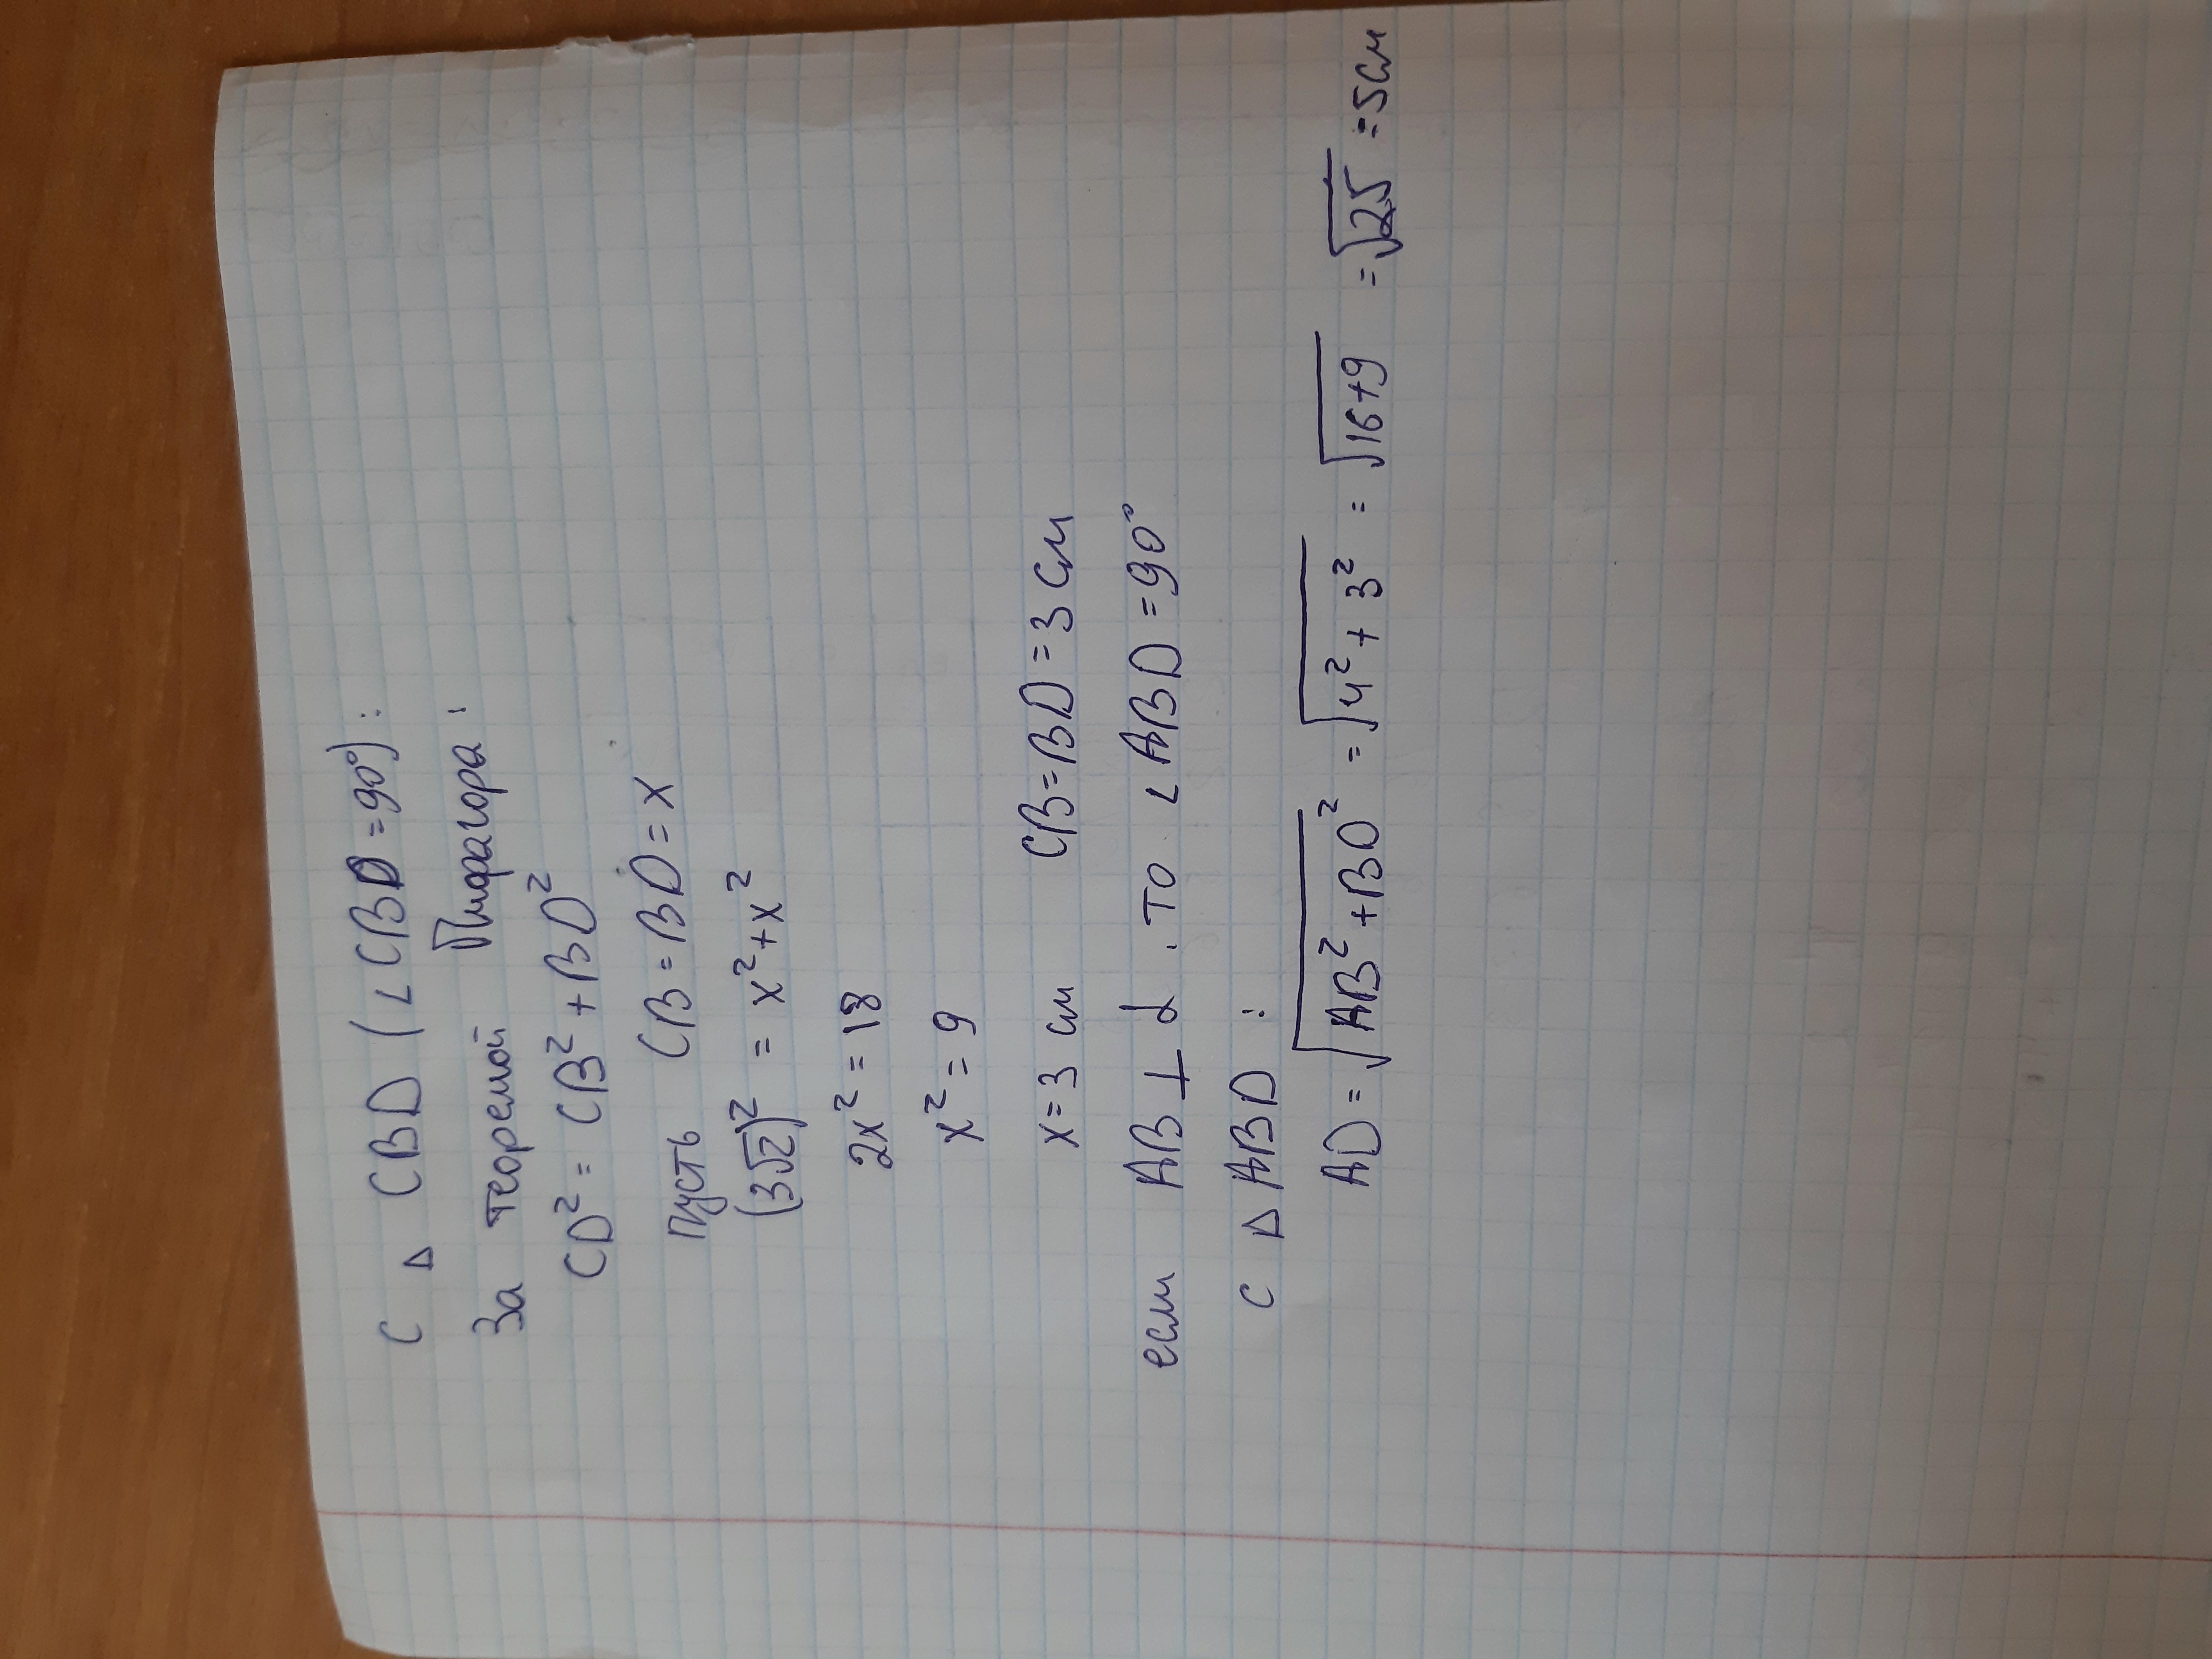 С Δ CBD (∠CBD=90°):
За теоремой Пифагора:
CD²=CB²+BD²
Пусть CB=BD=x
(3√2)²=x²+x²
2x²=18
x²=9
x=3 см CB=BD=3 см
если AB⊥α. То ∠ABD=90°
С Δ ABD:
AD=√AB²+BD²=√4²+3²=√16+9=√25=5см